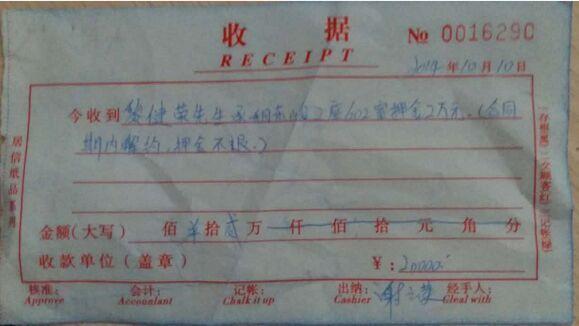 收 据 № 0016290
RECEIPT
2014年10月10日
今收到 健荣先生承租东 2座602室押金2万元。(合同
期内解约,押金不退。)
金额(大写) 佰 拾贰万 仟 佰 拾 元 角 分
收款单位(盖章) ¥: 20000
核准: 会计: 记帐: 出纳: 经手人:
Approve Accountant Chalk it up Cashier Gleal with
居信纸品系列
(存根黑) (顾客红)